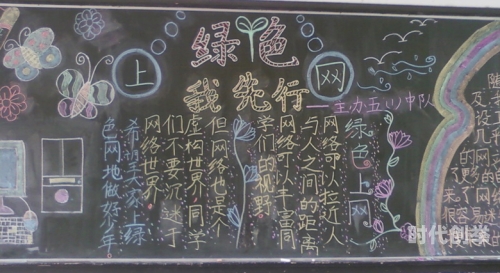 绿色
上网
我先行
——主办五(1)中队
绿色上网
网络可以拉近人
与人之间的距离
网络可以丰富同
学们的视野。
但网络也是个
虚构世界,同学
们不要沉迷于
网络世界。
希望大家上绿
色网地做好少年